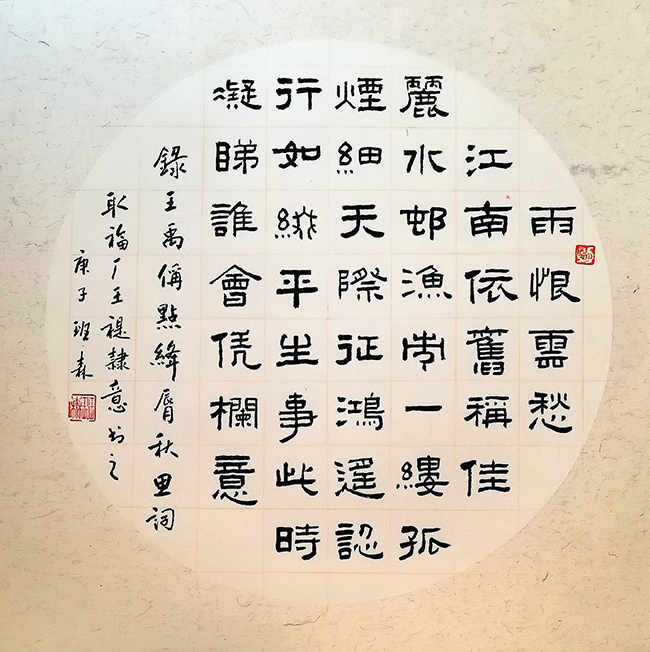 雨恨雲愁
江南依舊稱佳
麗水邨漁市一縷孤
煙細天際征鴻遥認
行如綫平生事此時
凝睇誰會凭欄意
錄王禹偁點絳脣秋思詞
取福厂王禔隸意书之
庚子班森